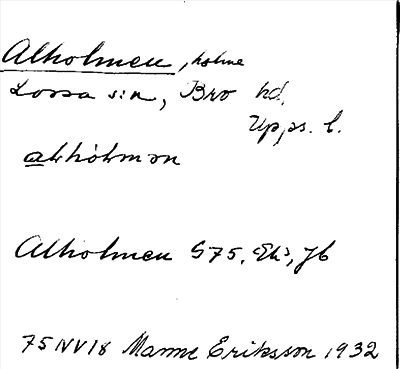 Alholmen, holme
Lossa sn, Bro hd,
Upps. l.
alhòlmən
Alholmen S75, Ek, Jb
75NV18 Manne Eriksson 1932